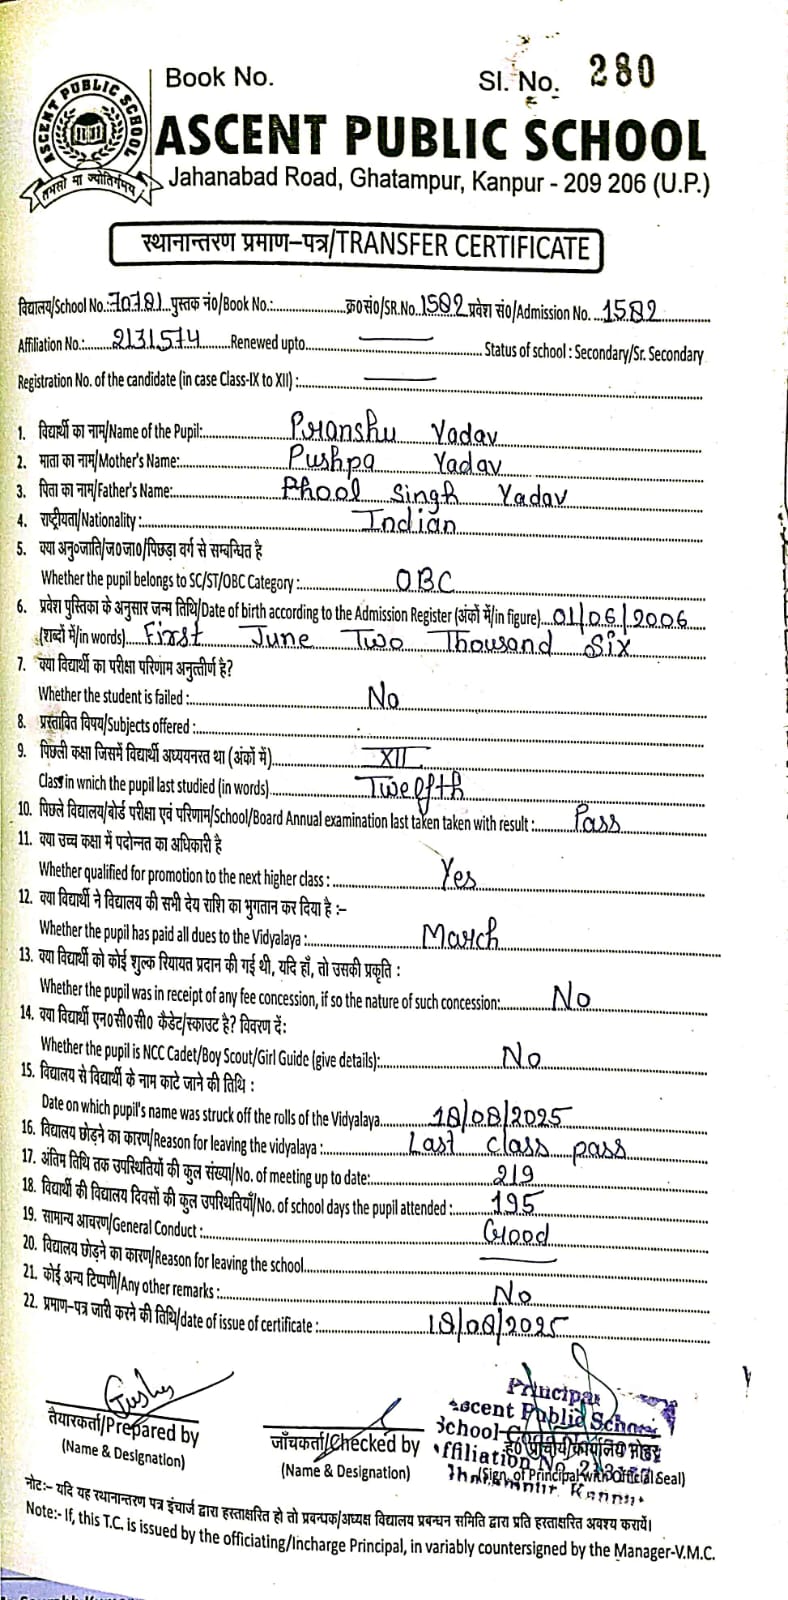 Book No. Sl. No. 280
ASCENT PUBLIC SCHOOL
तमसो मा ज्योतिर्गमय
ASCENT PUBLIC SCHOOL
Jahanabad Road, Ghatampur, Kanpur - 209 206 (U.P.)
स्थानान्तरण प्रमाण-पत्र/TRANSFER CERTIFICATE
विद्यालय/School No.:70781 पुस्तक नं0/Book No.: क्र0सं0/SR.No. 1582 प्रवेश सं0/Admission No. 1582
Affiliation No.: 2131574 Renewed upto Status of school : Secondary/Sr. Secondary
Registration No. of the candidate (in case Class-IX to XII) :
1. विद्यार्थी का नाम/Name of the Pupil: Pranshu Yadav
2. माता का नाम/Mother's Name: Pushpa Yadav
3. पिता का नाम/Father's Name: Phool Singh Yadav
4. राष्ट्रीयता/Nationality : Indian
5. क्या अनु0जाति/ज0जा0/पिछड़ा वर्ग से सम्बन्धित है
Whether the pupil belongs to SC/ST/OBC Category : OBC
6. प्रवेश पुस्तिका के अनुसार जन्म तिथि/Date of birth according to the Admission Register (अंकों में/in figure) 01/06/2006
(शब्दों में/in words) First June Two Thousand Six
7. क्या विद्यार्थी का परीक्षा परिणाम अनुत्तीर्ण है?
Whether the student is failed : No
8. प्रस्तावित विषय/Subjects offered :
9. पिछली कक्षा जिसमें विद्यार्थी अध्ययनरत था (अंकों में) XII
Class in wnich the pupil last studied (in words) Twelfth
10. पिछले विद्यालय/बोर्ड परीक्षा एवं परिणाम/School/Board Annual examination last taken taken with result : Pass
11. क्या उच्च कक्षा में पदोन्नत का अधिकारी है
Whether qualified for promotion to the next higher class : Yes
12. क्या विद्यार्थी ने विद्यालय की सभी देय राशि का भुगतान कर दिया है :-
Whether the pupil has paid all dues to the Vidyalaya : March
13. क्या विद्यार्थी को कोई शुल्क रियायत प्रदान की गई थी, यदि हाँ, तो उसकी प्रकृति :
Whether the pupil was in receipt of any fee concession, if so the nature of such concession: No
14. क्या विद्यार्थी एन0सी0सी0 कैडेट/स्काउट है? विवरण दें:
Whether the pupil is NCC Cadet/Boy Scout/Girl Guide (give details): No
15. विद्यालय से विद्यार्थी के नाम काटे जाने की तिथि :
Date on which pupil's name was struck off the rolls of the Vidyalaya 18/08/2025
16. विद्यालय छोड़ने का कारण/Reason for leaving the vidyalaya : Last class pass
17. अंतिम तिथि तक उपस्थितियों की कुल संख्या/No. of meeting up to date: 219
18. विद्यार्थी की विद्यालय दिवसों की कुल उपस्थितियाँ/No. of school days the pupil attended : 195
19. सामान्य आचरण/General Conduct : Good
20. विद्यालय छोड़ने का कारण/Reason for leaving the school
21. कोई अन्य टिप्पणी/Any other remarks : No
22. प्रमाण-पत्र जारी करने की तिथि/date of issue of certificate : 18/08/2025
Principal
Ascent Public School
तैयारकर्ता/Prepared by जाँचकर्ता/Checked by School
(Name & Designation) (Name & Designation) Affiliation No. (Sign. of Principal with Official Seal)
नोट:- यदि यह स्थानान्तरण पत्र इंचार्ज द्वारा हस्ताक्षरित हो तो प्रबन्धक/अध्यक्ष विद्यालय प्रबन्धन समिति द्वारा प्रति हस्ताक्षरित अवश्य करायें।
Note:- If, this T.C. is issued by the officiating/Incharge Principal, in variably countersigned by the Manager-V.M.C.